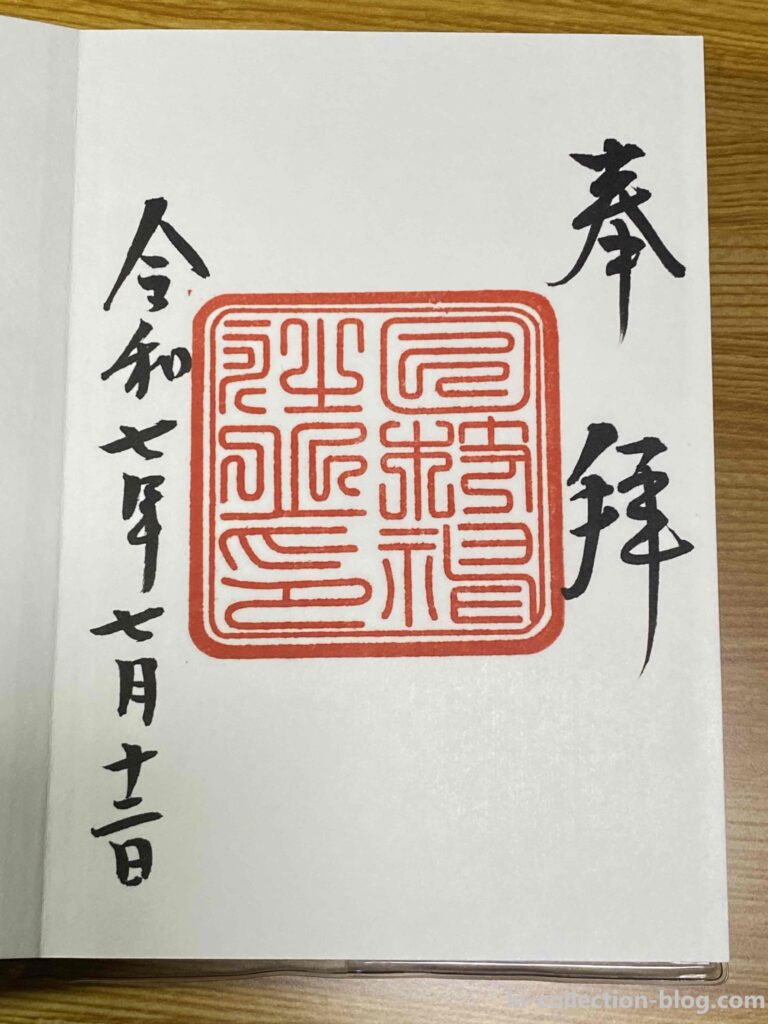 奉拝
令和七年七月十二日
collection-blog.com